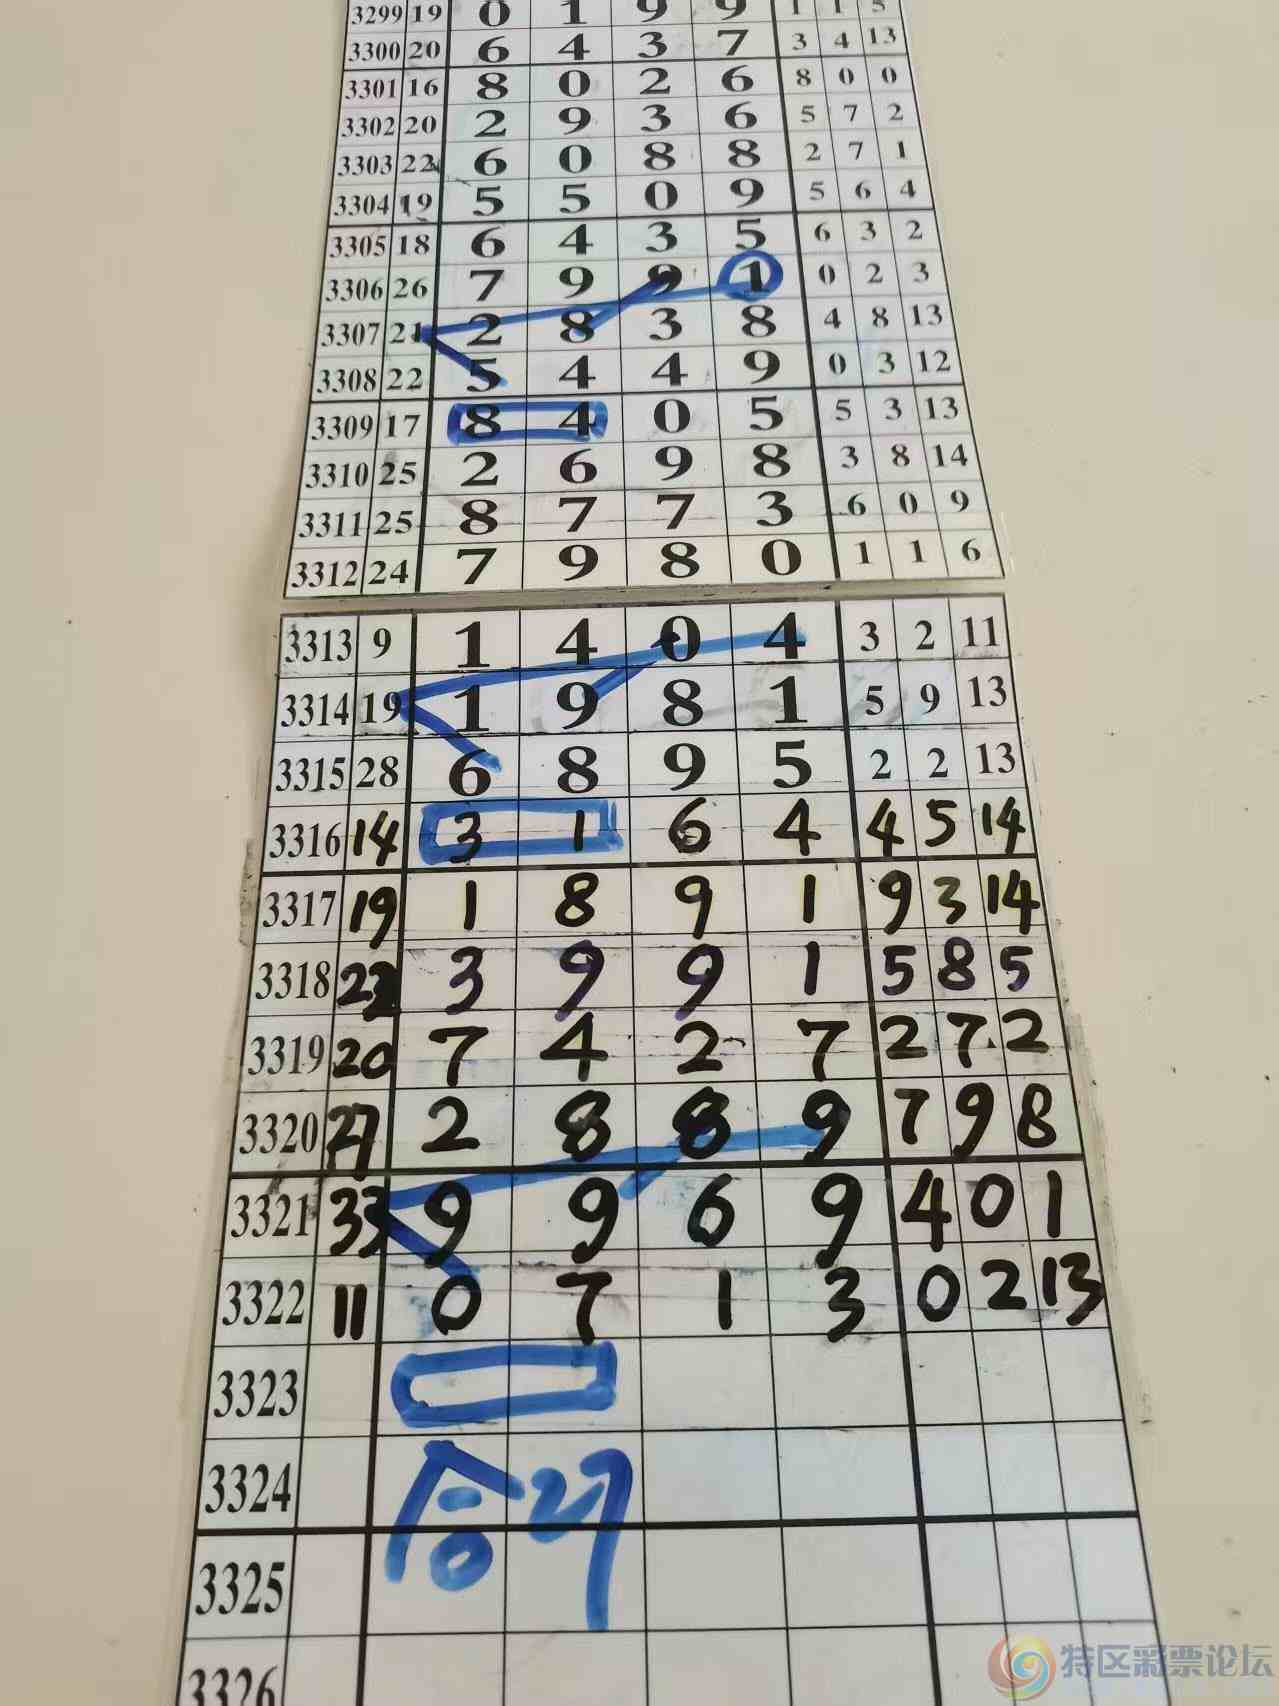 3299 19 0 1 9 9 1 1 5
3300 20 6 4 3 7 3 4 13
3301 16 8 0 2 6 8 0 0
3302 20 2 9 3 6 5 7 2
3303 22 6 0 8 8 2 7 1
3304 19 5 5 0 9 5 6 4
3305 18 6 4 3 5 6 3 2
3306 26 7 9 9 1 0 2 3
3307 21 2 8 3 8 4 8 13
3308 22 5 4 4 9 0 3 12
3309 17 8 4 0 5 5 3 13
3310 25 2 6 9 8 3 8 14
3311 25 8 7 7 3 6 0 9
3312 24 7 9 8 0 1 1 6
3313 9 1 4 0 4 3 2 11
3314 19 1 9 8 1 5 9 13
3315 28 6 8 9 5 2 2 13
3316 14 3 1 6 4 4 5 14
3317 19 1 8 9 1 9 3 14
3318 22 3 9 9 1 5 8 5
3319 20 7 4 2 7 2 7 2
3320 27 2 8 8 9 7 9 8
3321 33 9 9 6 9 4 0 1
3322 11 0 7 1 3 0 2 13
3323
3324
合27
3325
3326
特区彩票论坛